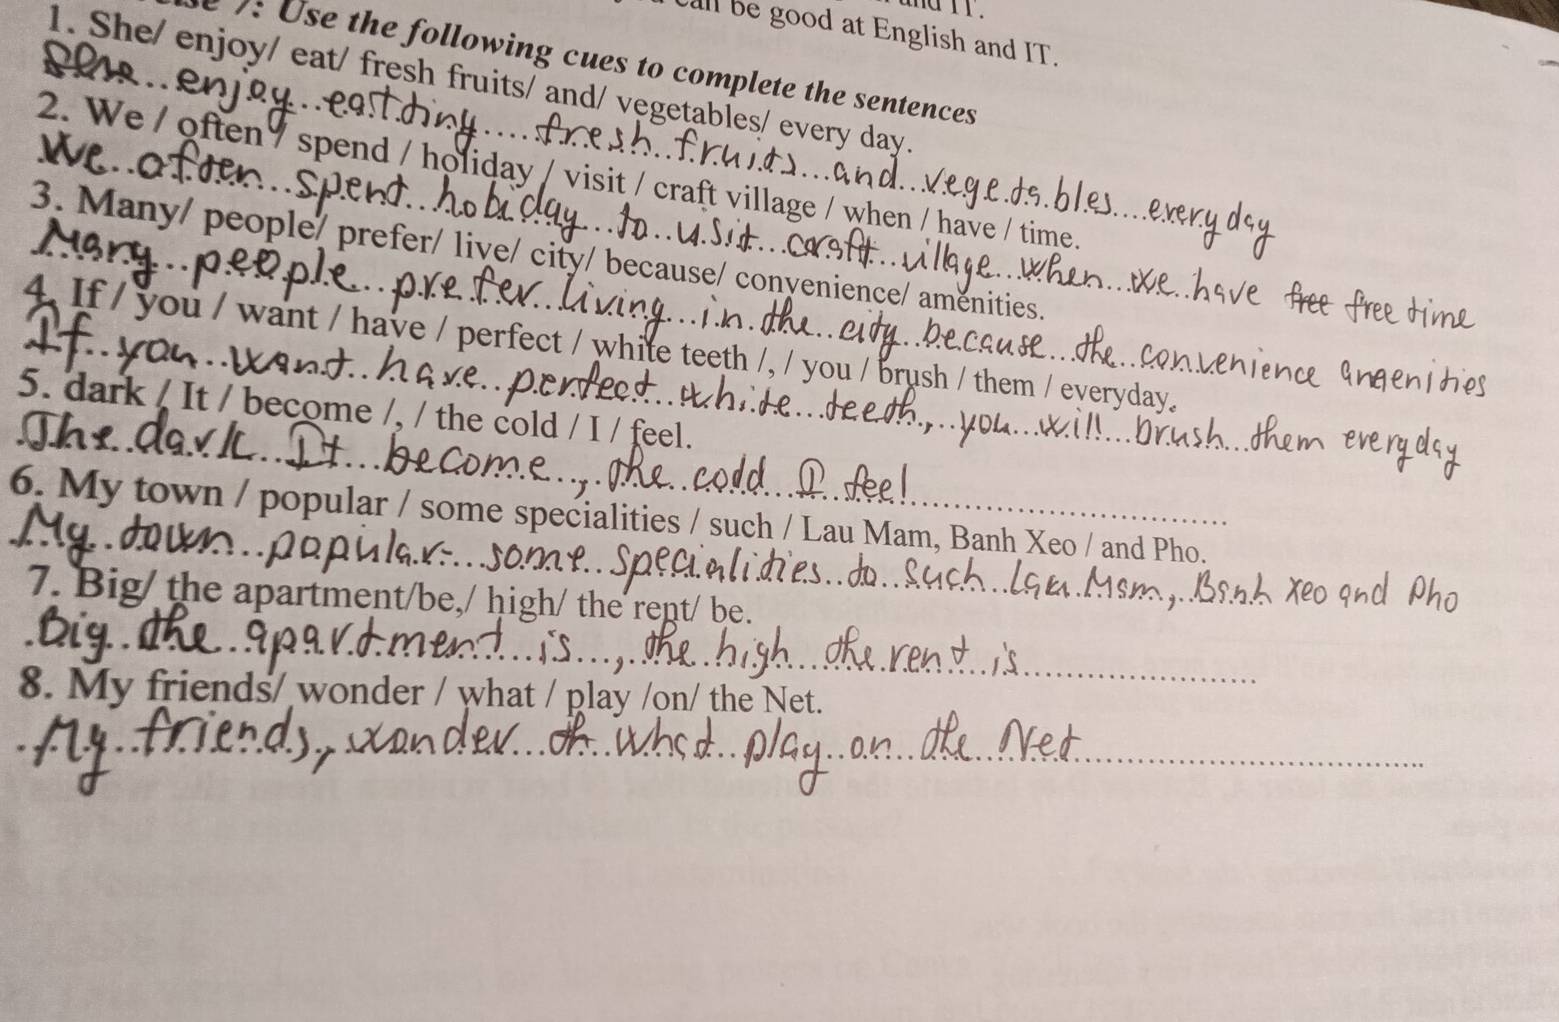 can be good at English and IT.
7: Use the following cues to complete the sentences
1. She/ enjoy/ eat/ fresh fruits/ and/ vegetables/ every day.
enjoy eatding fresh fruits and vegetables every day
2. We / often / spend / holiday / visit / craft village / when / have / time.
We often spent hobiday to visit craft village when we have free free time
3. Many/ people/ prefer/ live/ city/ because/ convenience/ amenities.
Many people prefer living in the city because the convenience amenities
4. If / you / want / have / perfect / white teeth /, / you / brush / them / everyday.
If you want have perfect white teeth, you will brush them everyday
5. dark / It / become /, / the cold / I / feel.
The dark It become, the codd I feel
6. My town / popular / some specialities / such / Lau Mam, Banh Xeo / and Pho.
My town popular some specialities to such Lau Mam, Banh xeo and Pho
7. Big/ the apartment/be,/ high/ the rent/ be.
Big the apartment is, the high the rent is
8. My friends/ wonder / what / play /on/ the Net.
My friends, wonder what play on the Net